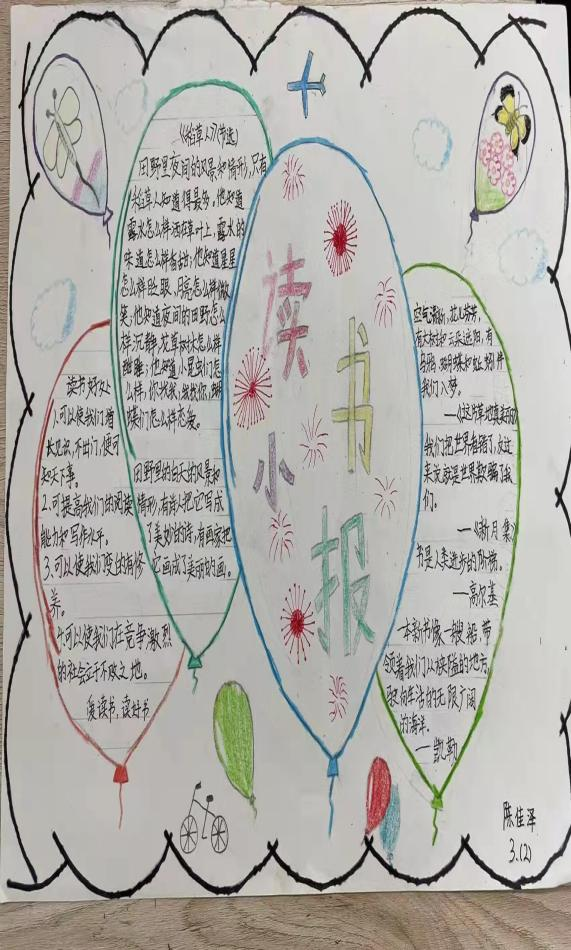 读书小报
《稻草人》(节选)
田野里夜间的风景和情形,只有
稻草人知道得最多。他知道
露水怎么样洒在草叶上,露水的
味道怎么样香甜;他知道星星
怎么样眨眼,月亮怎么样微
笑;他知道夜间的田野怎么
样沉静,花草树木怎么样
酣睡;他知道小昆虫们怎
么样你找我,我找你,蝴
蝶们怎么样恋爱。
田野里的白天的风景和
情形,有诗人把它写成
了美妙的诗,有画家把
它画成了美丽的画。
读书好处
1.可以使我们增
长见识,不出门,便可
知天下事。
2.可提高我们的阅读
能力和写作水平。
3.可以使我们变的有修
养。
4.可以使我们在竞争激烈
的社会立于不败之地。
爱读书,读好书
空气清新,花儿芬芳,
有大树和云朵遮阳,有
们入梦。
我们把世界看错了,反过
来说是世界欺骗了我
们。
——《新月集》
书是人类进步的阶梯。
——高尔基
一本新书像一艘船,带
领着我们从狭隘的地方,
驶向生活的无限广阔
的海洋。
——凯勒
陈佳泽
3.(2)